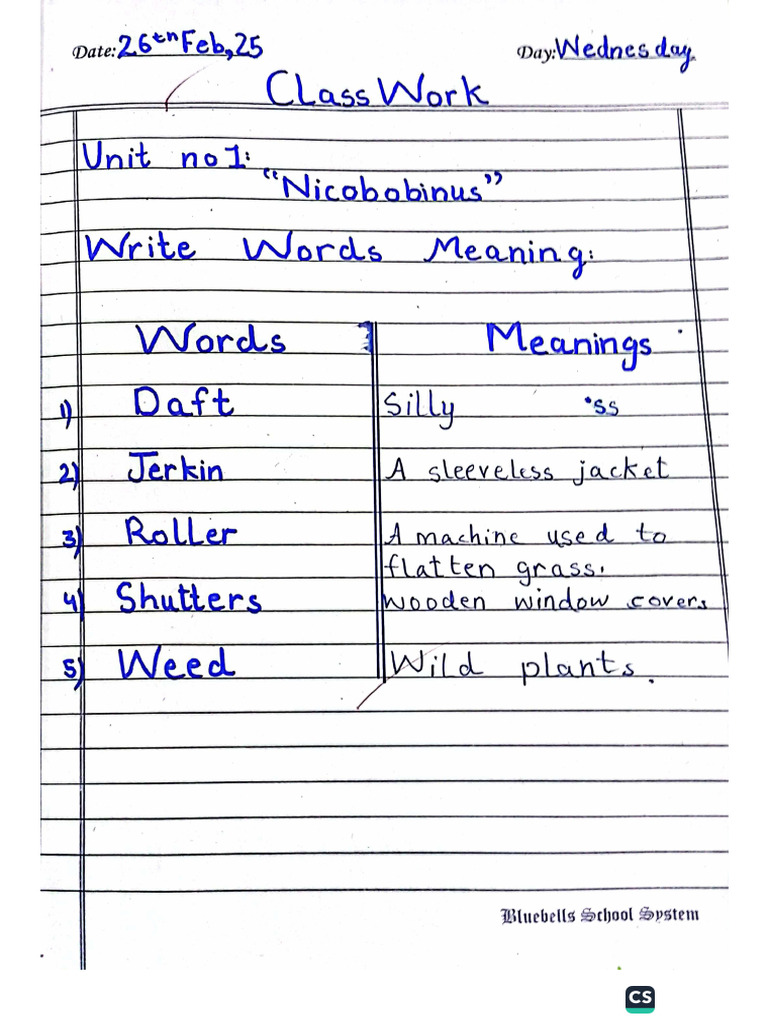 Date: 26th Feb, 25 Day: Wednesday
Class Work
Unit no 1:
"Nicobobinus"
Write Words Meaning:
Words Meanings
1) Daft Silly ss
2) Jerkin A sleeveless jacket
3) Roller A machine used to
flatten grass.
4) Shutters Wooden window covers
5) Weed Wild plants.
Bluebells School System
CS